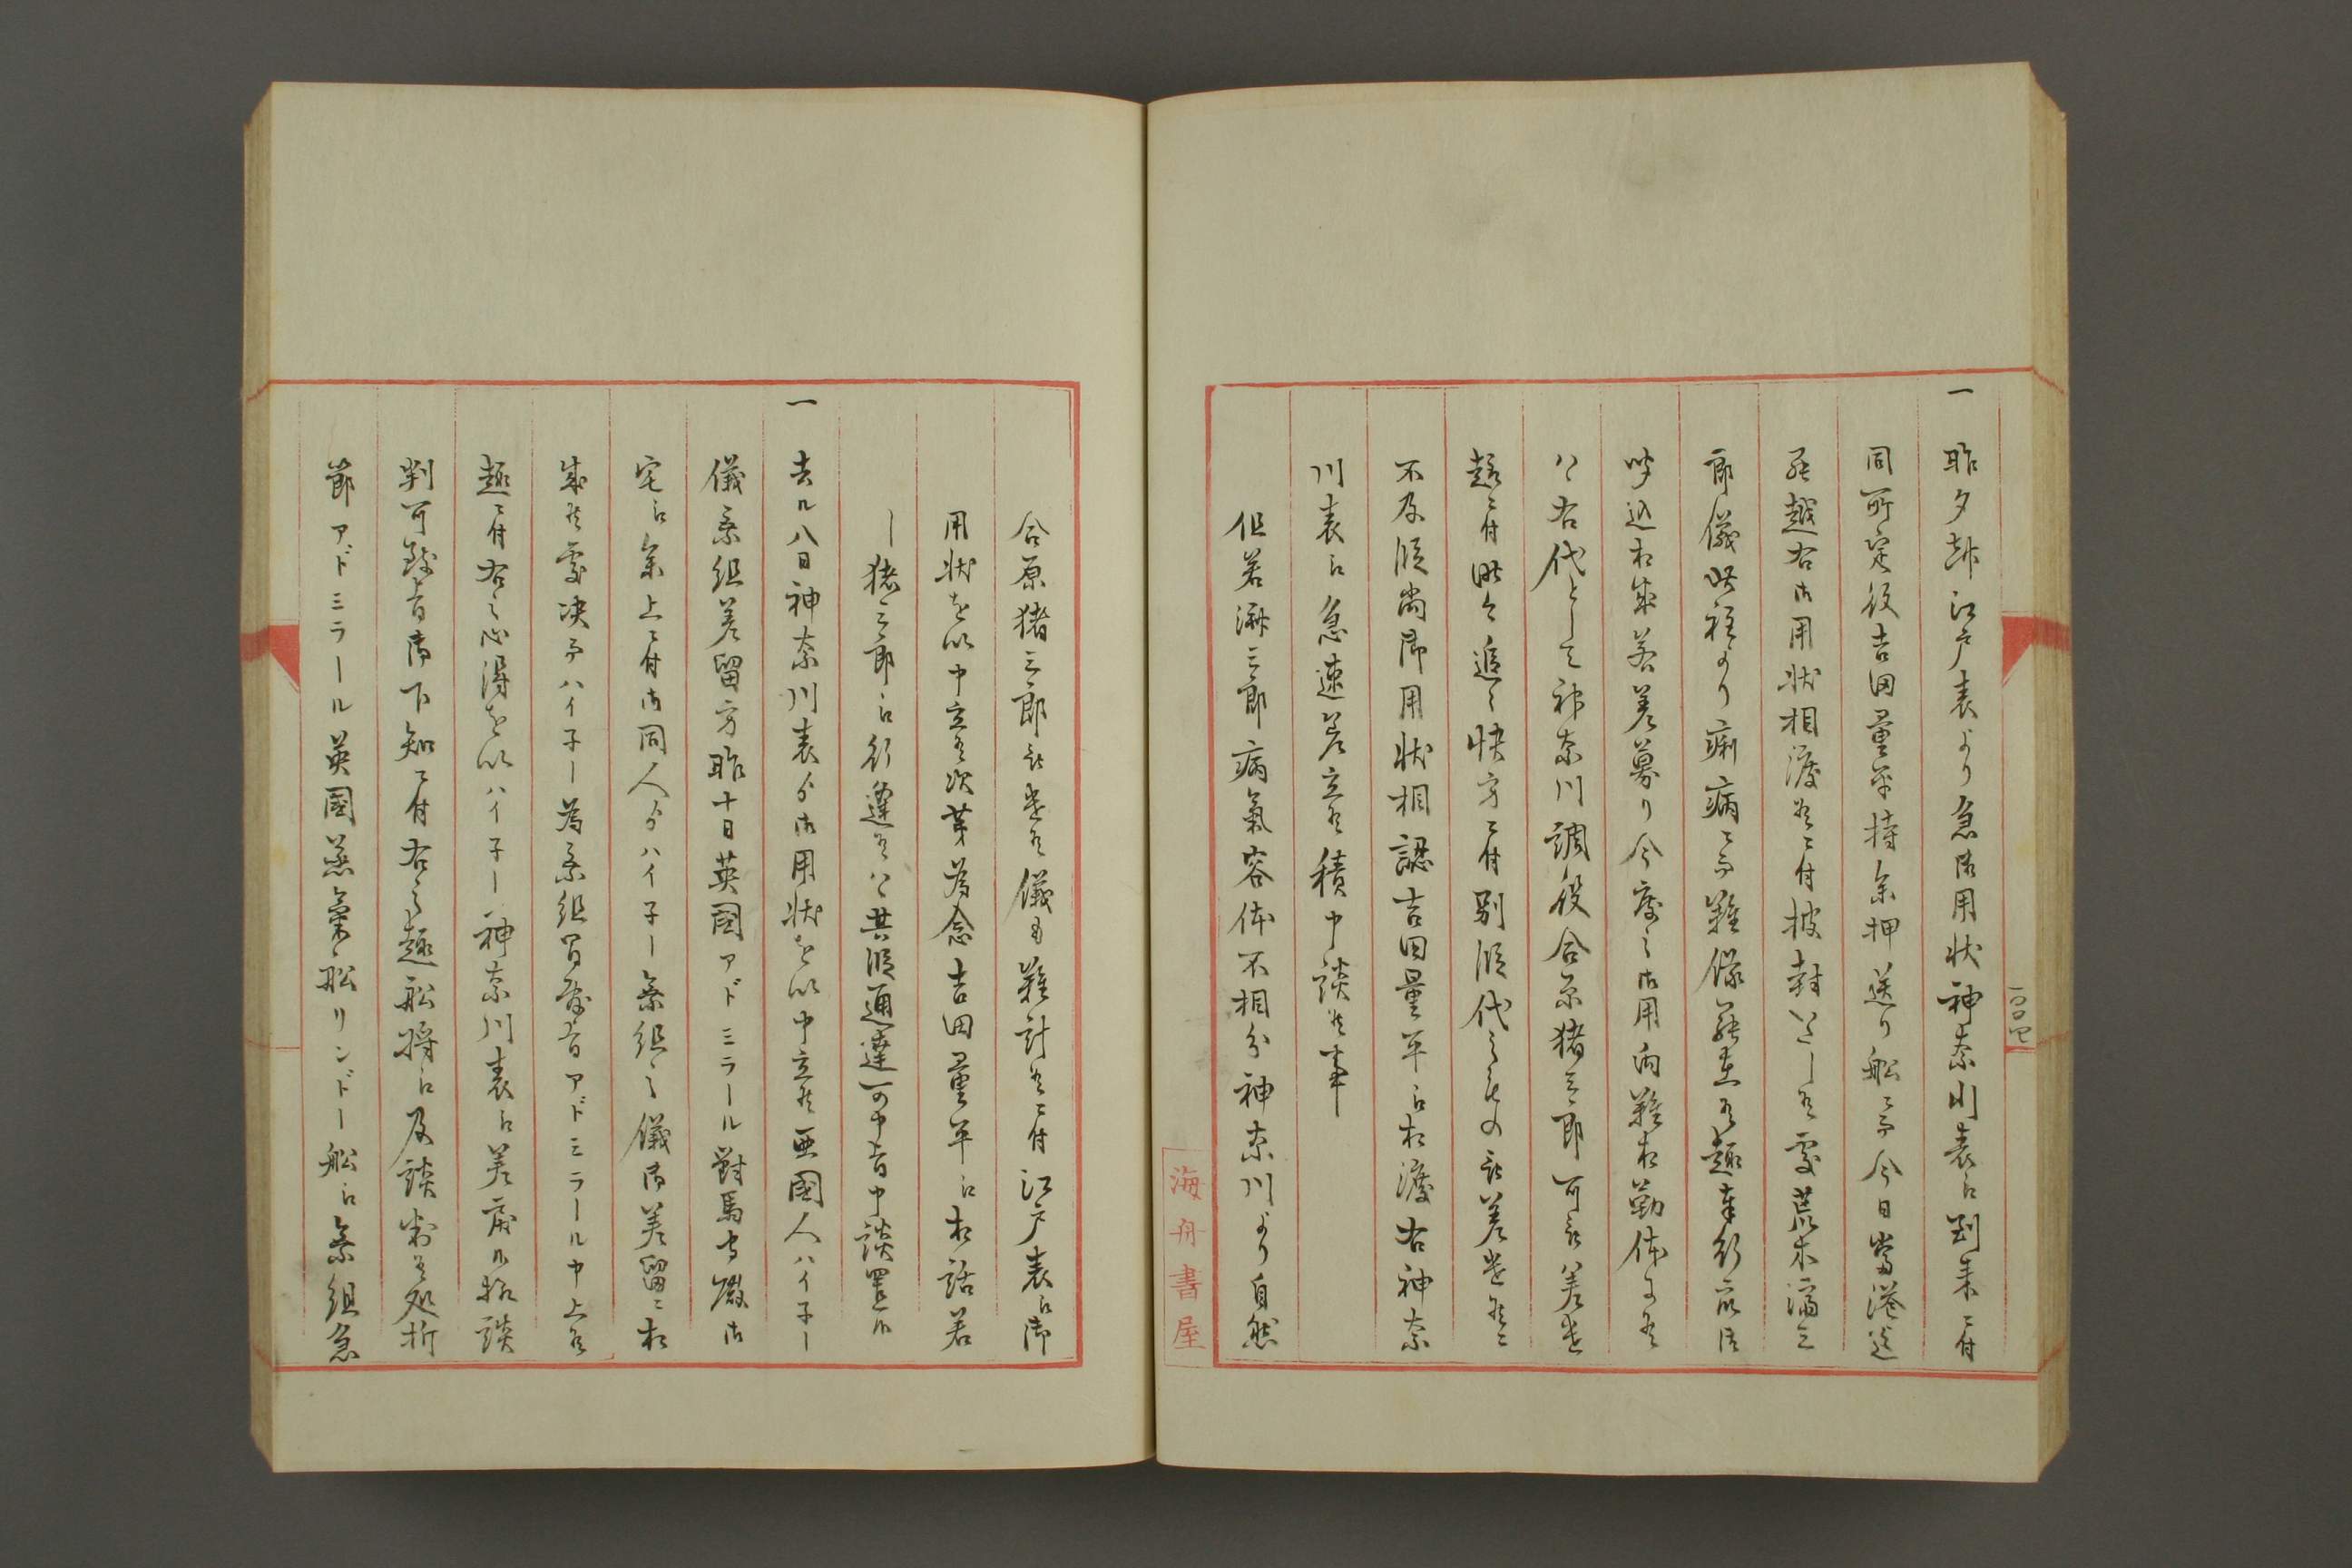 一 昨夕語江戸表より急御用状神奈川表江到来ニ付
同所定役吉田量平持参押送り船ニ而今日当港迄
罷越右御用状相渡候ニ付披封いたし候處荒木済三
郎儀此程より痢病ニ而難儀罷在候趣奉行所江
申込相成差募り今度之御用向難相勤体ニ候
ハヽ右代として神奈川調役合原猪三郎可被差遣
趣ニ付此々追々快方ニ付別段代之もの被差遣候ニ
不及段尚御用状相認吉田量平江相渡右神奈
川表江急速差立候積申談候事
但若済三郎病氣容体不相分神奈川より自然
合原猪三郎被遣候儀も難計候ニ付江戸表江御
用状を以申立候次第為念吉田量平江相話若
し猪三郎江行逢候ハヽ其段通達可申旨申談置候
一 去ル八日神奈川表ゟ御用状を以申立候亜國人ハイ子ー
儀乗組差留方昨十日英國アドミラール對馬守殿御
宅江参上ニ付御同人ゟハイ子ー乗組之儀御差留ニ相
成候處決而ハイ子ー為乗組間敷旨アドミラール申上候
趣ニ付右之心得を以ハイ子ー神奈川表江差戻候様談
判可致旨御下知ニ付右之趣船将江及談判候処折
節アドミラール英國蒸氣船リンドー船江乗組急
海舟書屋